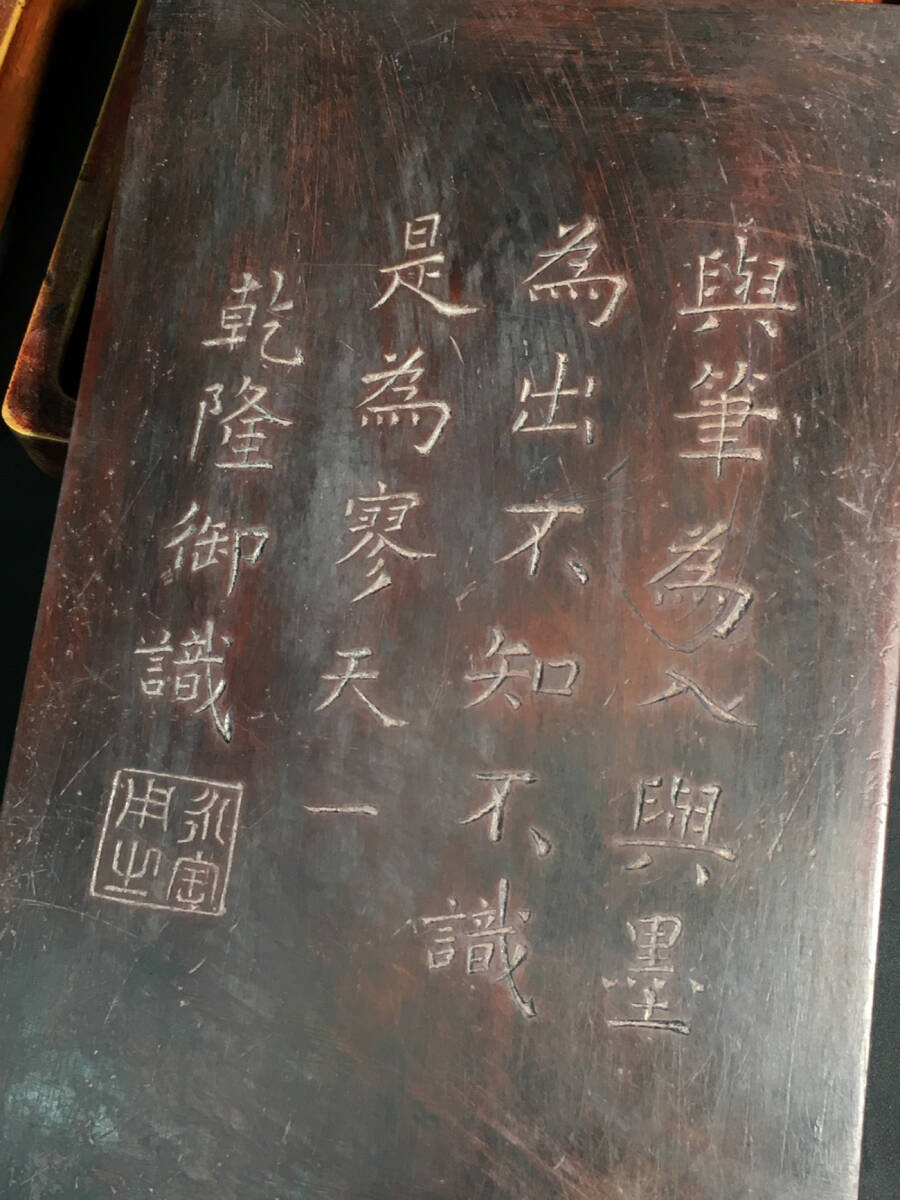 與筆為入與墨
為出不知不識
是為寥天一
乾隆御識
永寶用之